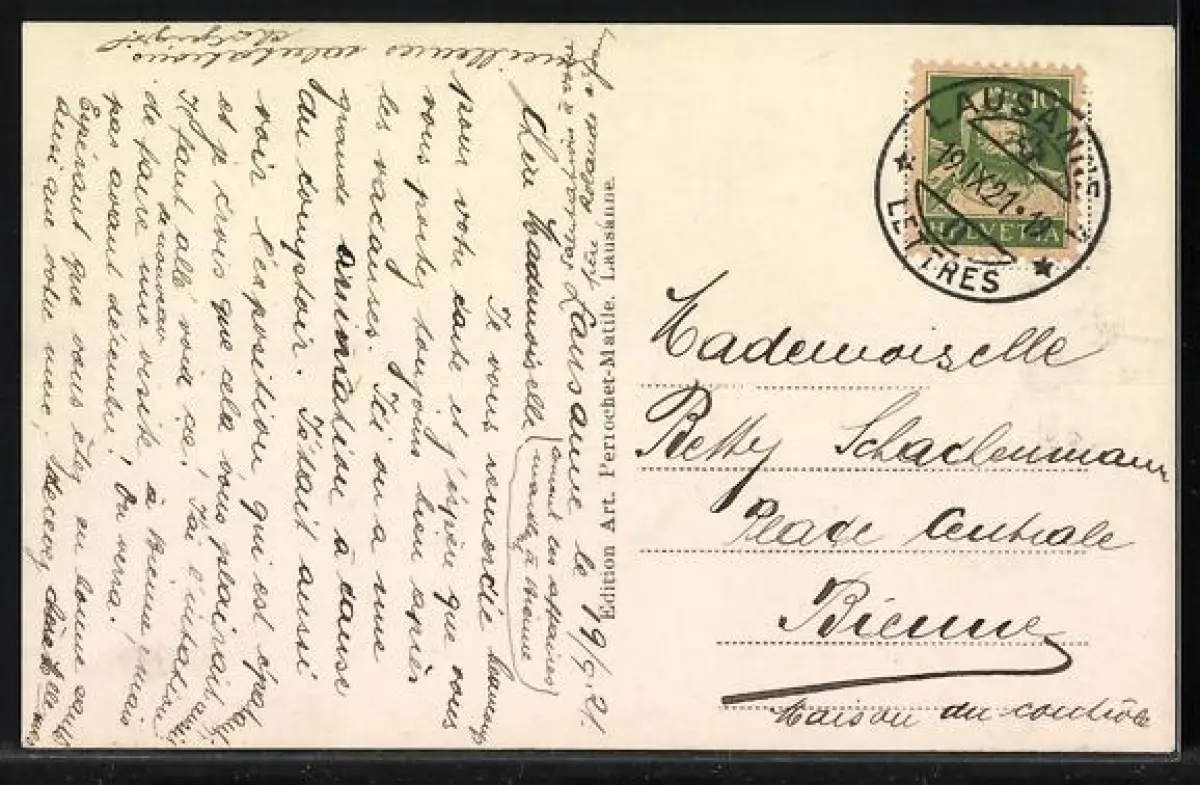 Lausanne le 19/9.21.
Chère Mademoiselle
Je vous remercie beaucoup
pour votre carte et j'espère que vous
vous portez toujours bien après
les vacances. Ici on a une
grande animation à cause
du comptoir. Il était aussi
voir l'exposition qui est épat.
et je crois que cela vous plairait
Il faut allé voir ça! J'ai l'intention
de nouveau
de faire une visite à Bienne, mais
pas avant décembre! On verra.
Espérant que vous êtes en bonne santé
ainsi que votre mère, recevez chère Mlle
meilleures salutations
Edition Art. Perrochet-Matile, Lausanne.
HELVETIA
10
LAUSANNE
19.IX.21
LETTRES
Mademoiselle
Betty Schachenmann
Place Centrale
Bienne
Maison du contrôle